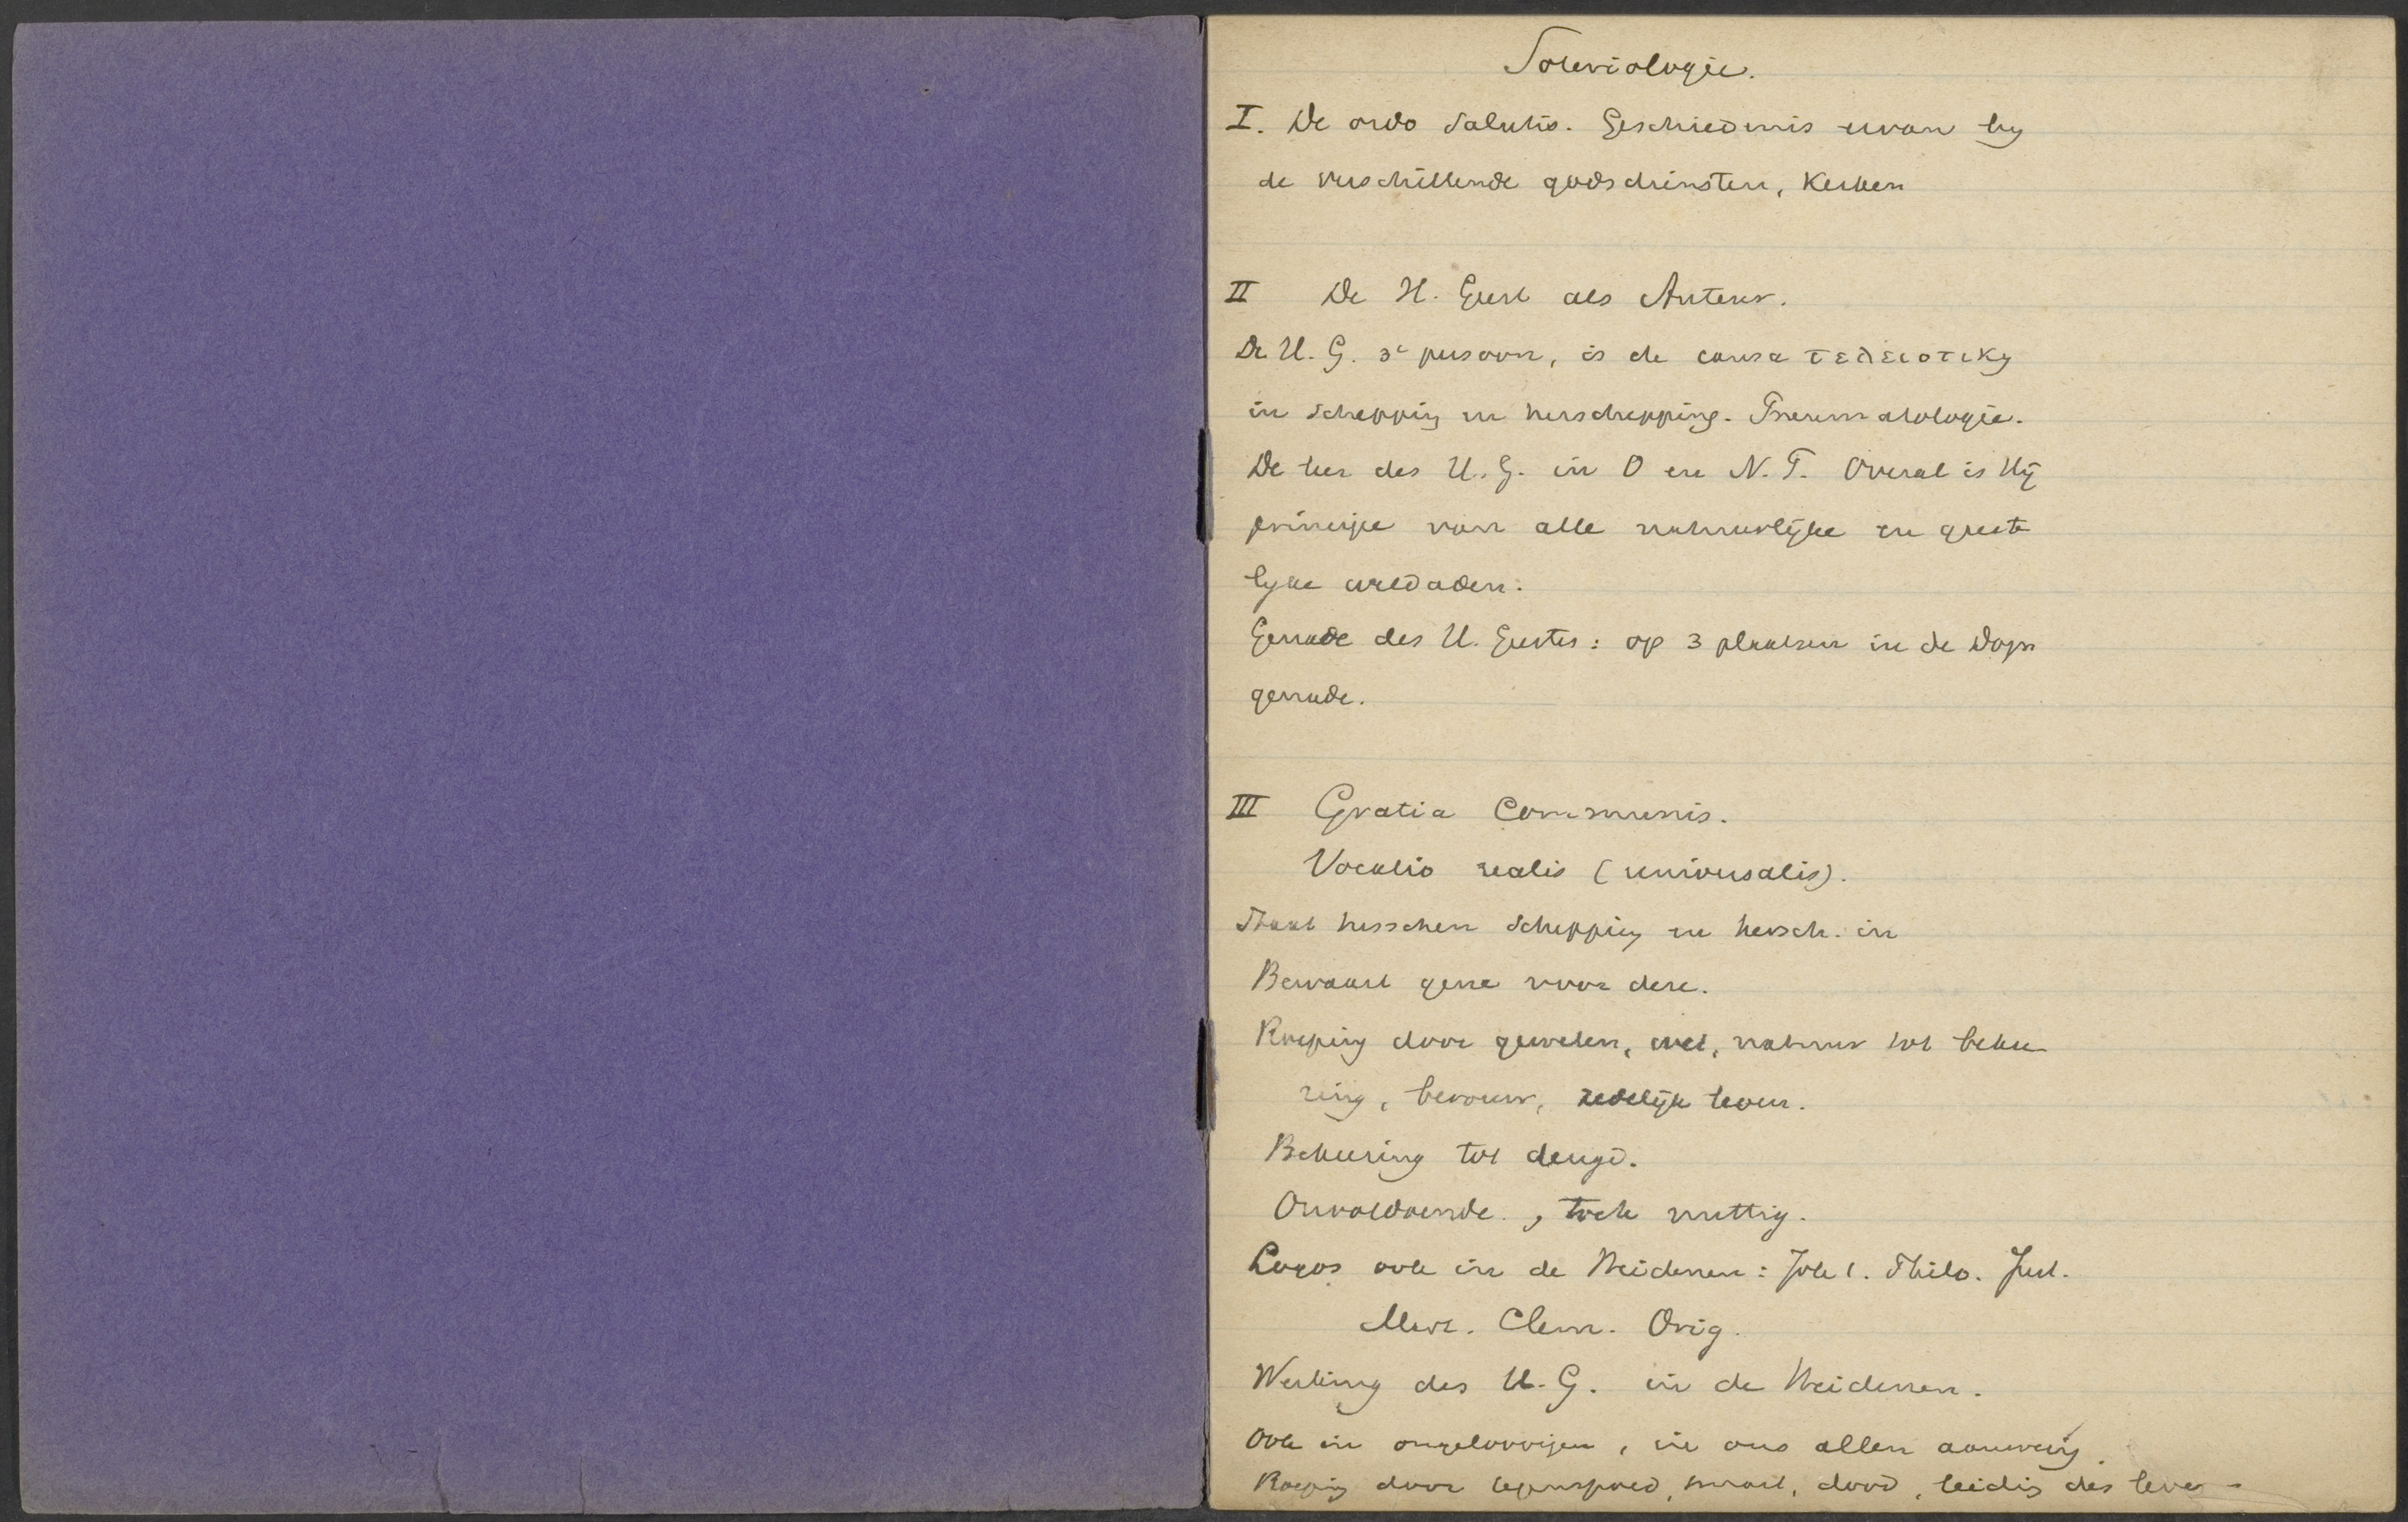 Soteriologie.
I. De ordo Salutis. Geschiedenis ervan bij
de verschillende godsdiensten, Kerken
II De H. Geest als Auteur.
De H. G. 3e persoon, is de causa τελειοτικη
in schepping en herschepping. Pneumatologie.
De leer des H. G. in O en N. T. Overal is Hij
principe van alle natuurlijke en geeste
lijke weldaden.
Genade des H. Geestes: op 3 plaatsen in de Dogm
genade.
III Gratia Communis.
Vocatio realis (universalis).
Staat tusschen schepping en hersch. in
Bewaart gene voor deze.
Roeping door geweten, wet, natuur tot bekee
ring, berouw, zedelijk leven.
Bekeering tot deugd.
Onvoldoende, toch nuttig.
Logos ook in de Heidenen: Joh 1. Philo. Just.
Mart. Clem. Orig.
Werking des H. G. in de Heidenen.
Ook in ongeloovigen, in ons allen aanwezig
Roeping door tegenspoed, smart, dood, leiding des leve-